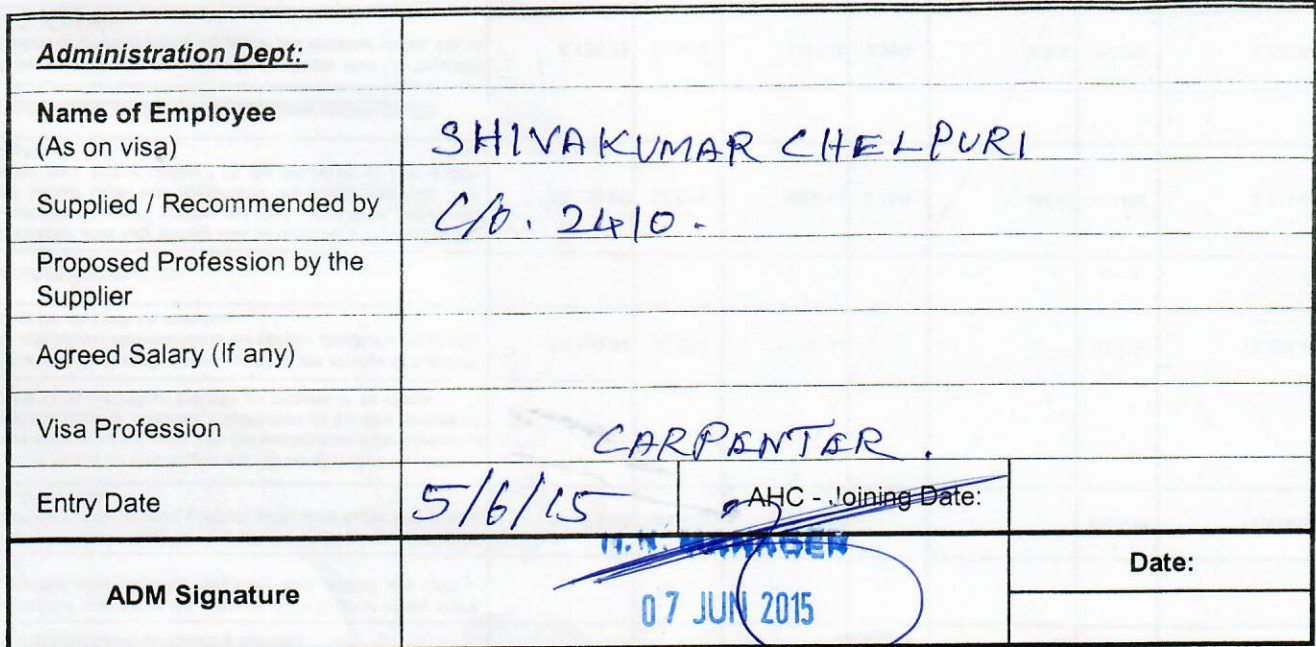 Administration Dept:
Name of Employee
(As on visa)
SHIVAKUMAR CHELPURI
Supplied / Recommended by
C/o. 2410.
Proposed Profession by the
Supplier
Agreed Salary (If any)
Visa Profession
CARPENTER.
Entry Date
5/6/15
AHC - Joining Date:
H.R. MANAGER
ADM Signature
07 JUN 2015
Date: